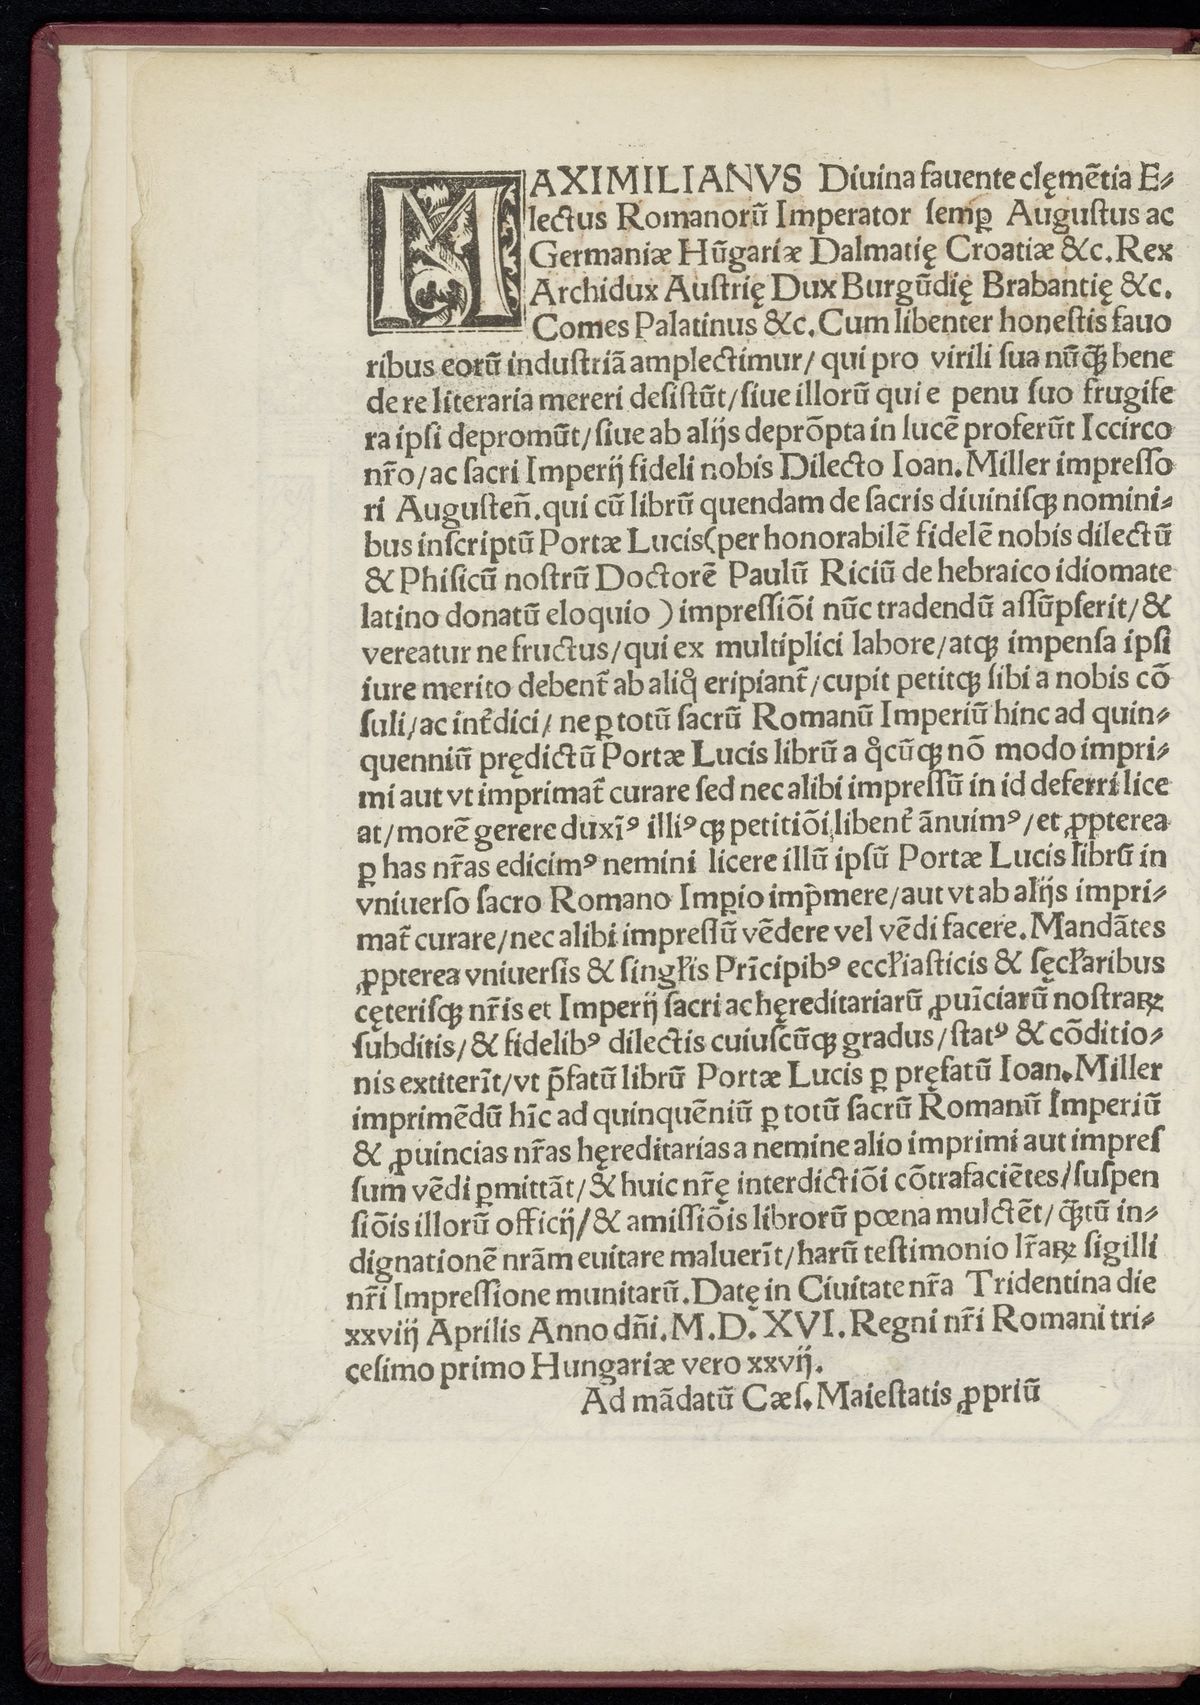 MAXIMILIANVS Diuina fauente clęmētia E⸗
lectus Romanorū Imperator ſemꝑ Auguſtus ac
Germaniæ Hūgariæ Dalmatię Croatiæ &c. Rex
Archidux Auſtrię Dux Burgūdię Brabantię &c.
Comes Palatinus &c. Cum libenter honeſtis fauo
ribus eorū induſtriā amplectimur/ qui pro virili ſua nūꝙ̃ bene
de re literaria mereri deſiſtūt/ ſiue illorū qui e penu ſuo frugife
ra ipſi depromūt/ ſiue ab alijs deprōpta in lucē proferūt Iccirco
nr̃o/ ac ſacri Imperij fideli nobis Dilecto Ioan. Miller impreſſo
ri Auguſteñ. qui cū librū quendam de ſacris diuiniſꝙ nomini⸗
bus inſcriptū Portæ Lucis (per honorabilē fidelē nobis dilectū
& Phiſicū noſtrū Doctorē Paulū Riciū de hebraico idiomate
latino donatū eloquio ) impreſſiōi nūc tradendū aſſūpſerit/ &
vereatur ne fructus/ qui ex multiplici labore/ atꝙ impenſa ipſi
iure merito debent̃ ab aliq̊ eripiant̃/ cupit petitꝙ ſibi a nobis cō
ſuli/ ac int̃dici/ ne ꝑ totū ſacrū Romanū Imperiū hinc ad quin⸗
quenniū prędictū Portæ Lucis librū a q̊cūꝙ nō modo impri⸗
mi aut vt imprimat̃ curare ſed nec alibi impreſſū in id deferri lice
at/ morē gerere duxīꝰ illiꝰꝙ petitiōi libent̃ ānuimꝰ/ et ꝓpterea
ꝑ has nr̃as edicimꝰ nemini licere illū ipſū Portæ Lucis librū in
vniuerſo ſacro Romano Imꝑio imp̃mere/ aut vt ab alijs impri⸗
mat̃ curare/ nec alibi impreſſū vēdere vel vēdi facere. Mandātes
ꝓpterea vniuerſis & ſingl̃is Prīcipibꝰ eccl̃iaſticis & ſęcl̃aribus
cęteriſꝙ nr̃is et Imperij ſacri ac hęreditariarū ꝓuīciarū noſtraꝝ
ſubditis/ & fidelibꝰ dilectis cuiuſcūꝙ gradus/ ſtatꝰ & cōditio⸗
nis extiterīt/ vt p̃fatū librū Portæ Lucis ꝑ pręfatū Ioan. Miller
imprimēdū hīc ad quinquēniū ꝑ totū ſacrū Romanū Imperiū
& ꝓuincias nr̃as hęreditarias a nemine alio imprimi aut impreſ
ſum vēdi ꝑmittāt/ & huic nr̃ę interdictiōi cōtrafaciētes/ ſuſpen
ſiōis illorū officij/ & amiſſiōis librorū pœna mulctēt/ ꝙ̃tū in⸗
dignationē nrãm euitare maluerīt/ harū teſtimonio lr̃aꝝ ſigilli
nr̃i Impreſſione munitarū. Datę in Ciuitate nr̃a Tridentina die
xxviij Aprilis Anno dñi. M.D. XVI. Regni nr̃i Romani tri⸗
ceſimo primo Hungariæ vero xxvij.
Ad mādatū Cæſ. Maieſtatis ꝓpriū